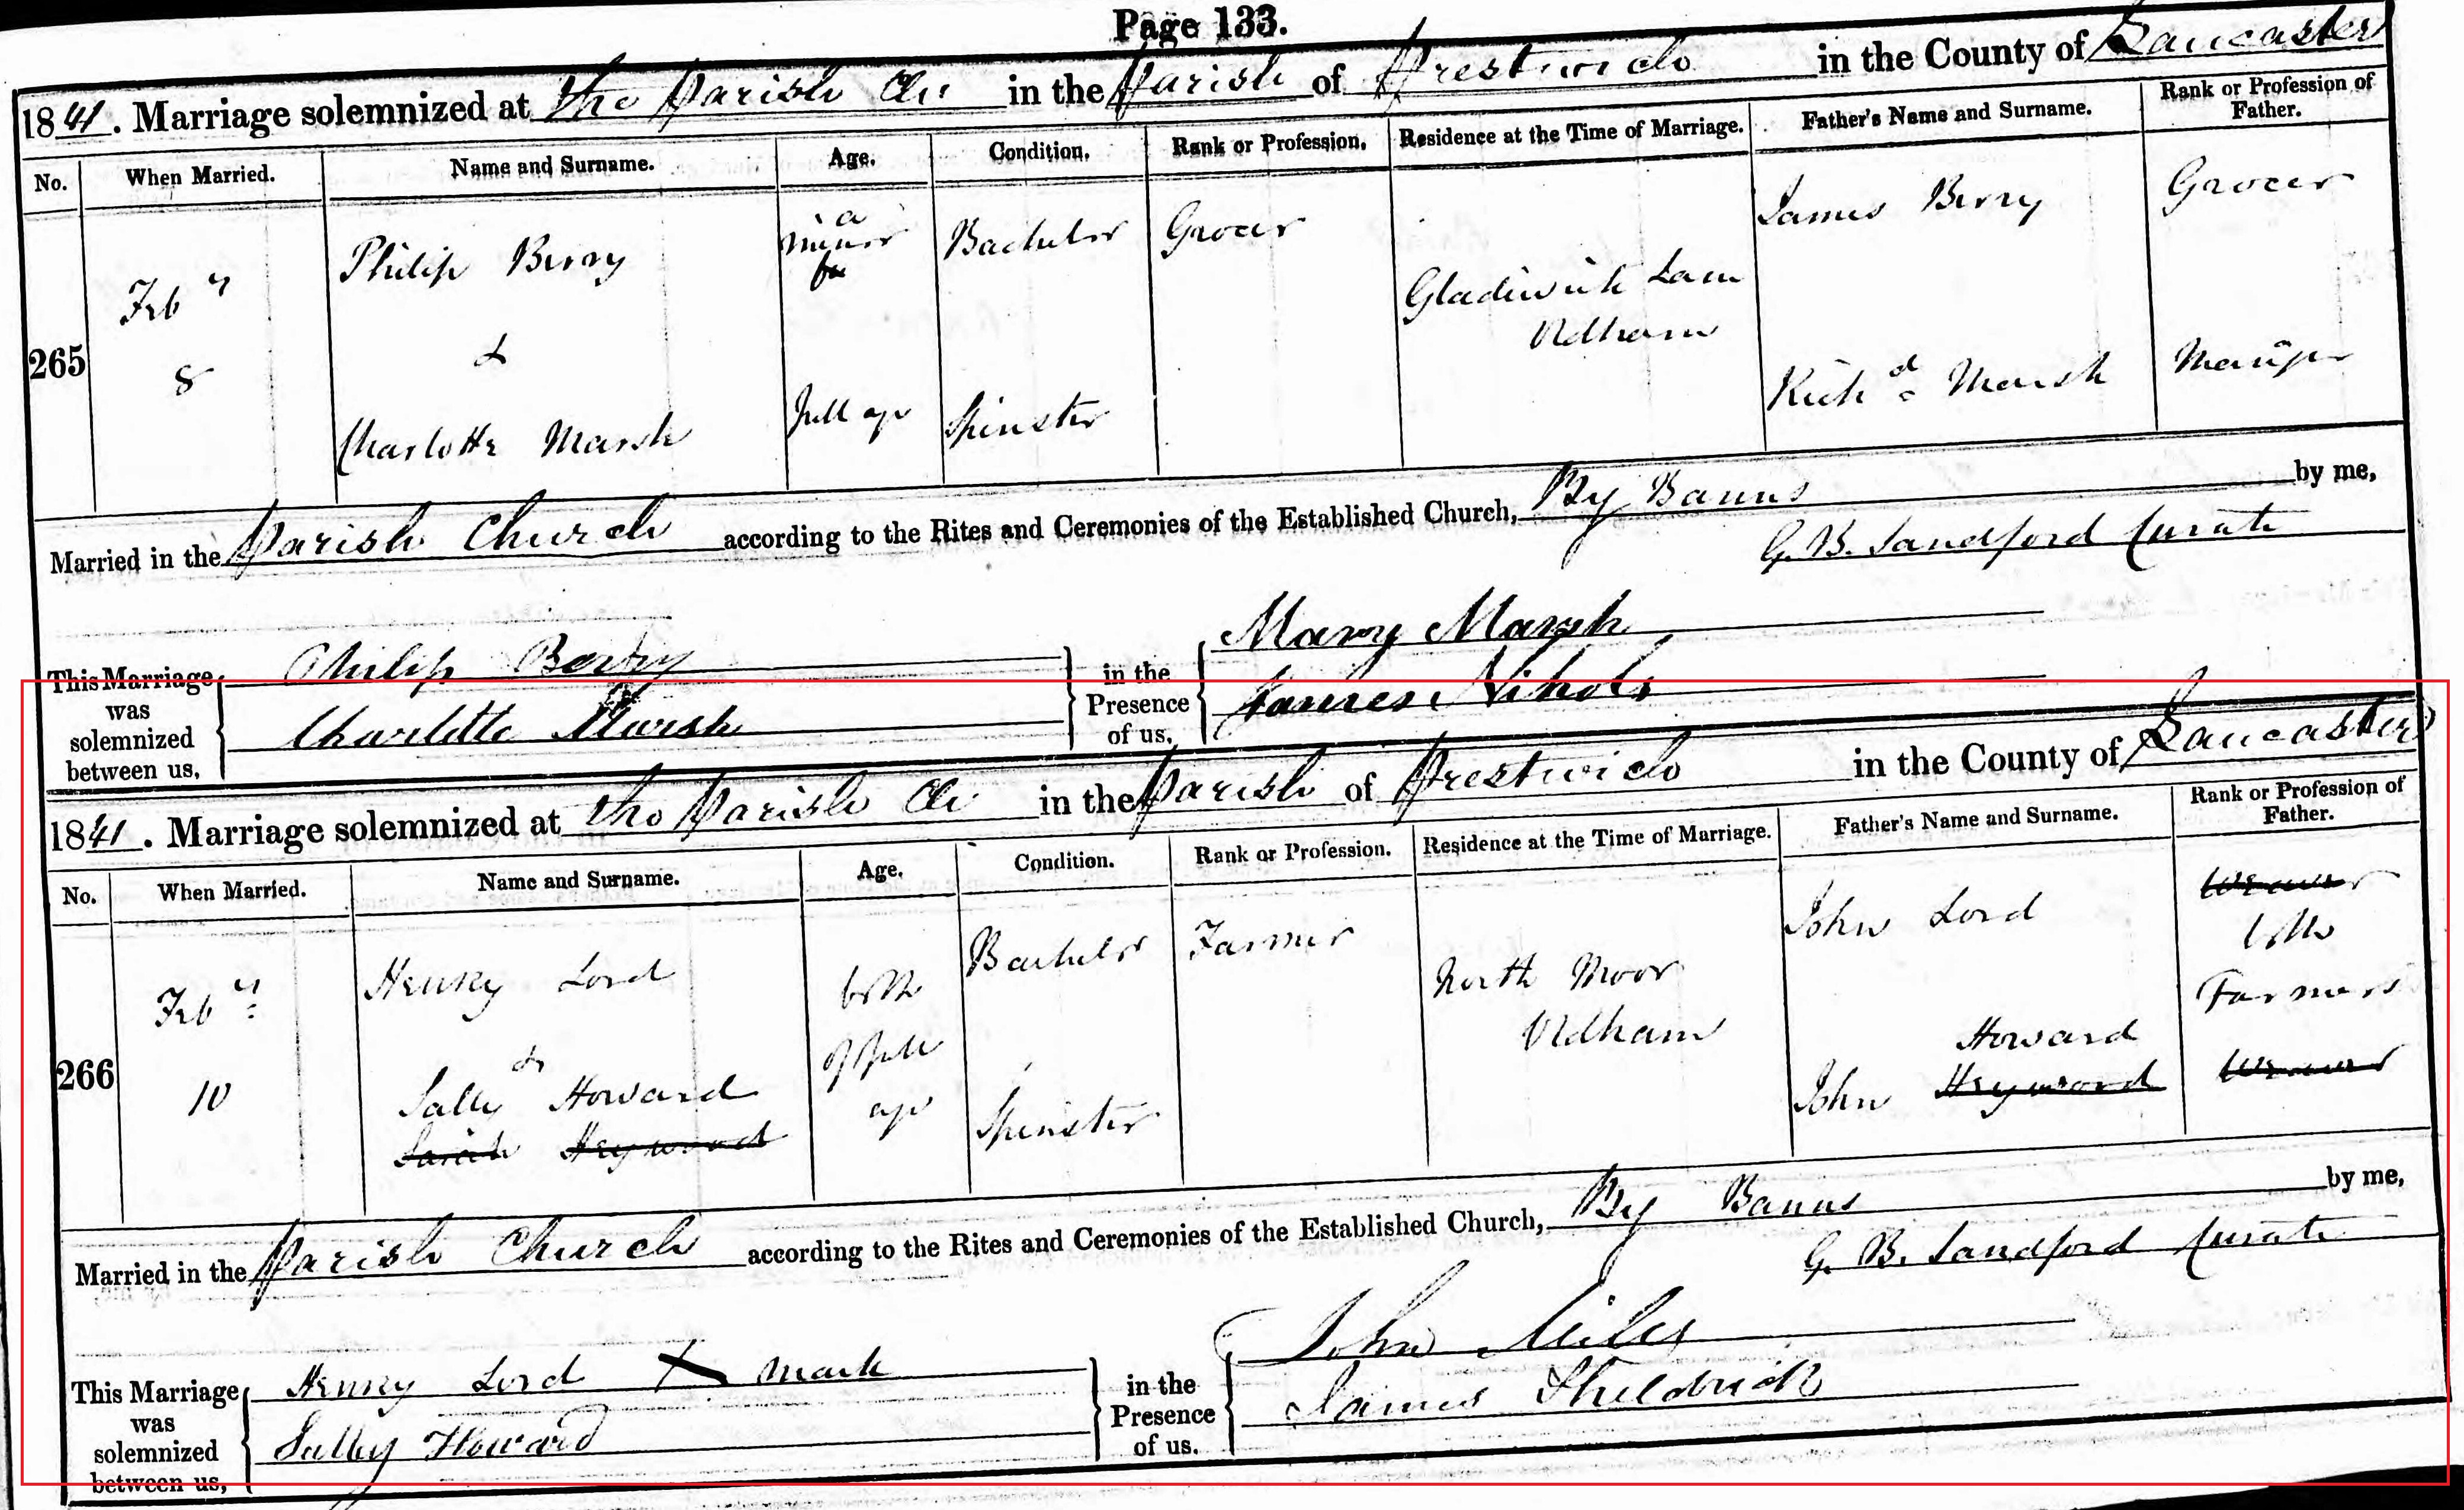 Page 133.
1841. Marriage solemnized at the Parish Ch: in the Parish of Prestwich in the County of Lancaster
No. When Married. Name and Surname. Age. Condition. Rank or Profession. Residence at the Time of Marriage. Father's Name and Surname. Rank or Profession of Father.
265
Feb y
8
Philip Berry
&
Charlotte Marsh
a
minor
Full age
Bachelor
Spinster
Grocer
Gladwick Lane
Oldham
James Berry
Richd Marsh
Grocer
Married in the Parish Church according to the Rites and Ceremonies of the Established Church, By Banns by me,
G. B. Sandford Curate
This Marriage was solemnized between us,
Philip Berry
Charlotte Marsh
in the Presence of us,
Mary Marsh
James Nihols
1841. Marriage solemnized at the Parish Ch in the Parish of Prestwich in the County of Lancaster
No. When Married. Name and Surname. Age. Condition. Rank or Profession. Residence at the Time of Marriage. Father's Name and Surname. Rank or Profession of Father.
266
Feb y
10
Henry Lord
&
Sally Howard
Sarah Heywood
both
of full
age
Bachelor
Spinster
Farmer
North Moor
Oldham
John Lord
Howard
John Heywood
Weaver
both
Farmers
Weaver
Married in the Parish Church according to the Rites and Ceremonies of the Established Church, By Banns by me,
G. B. Sandford Curate
This Marriage was solemnized between us,
Henry Lord X mark
Sally Howard
in the Presence of us,
John Miles
James Sheldrick